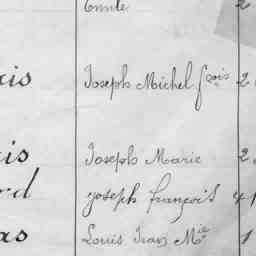 Emile 2
is Joseph Michel fçois 2
is Joseph Marie 2
rd joseph françois 4
as Louis Jean Mie 1